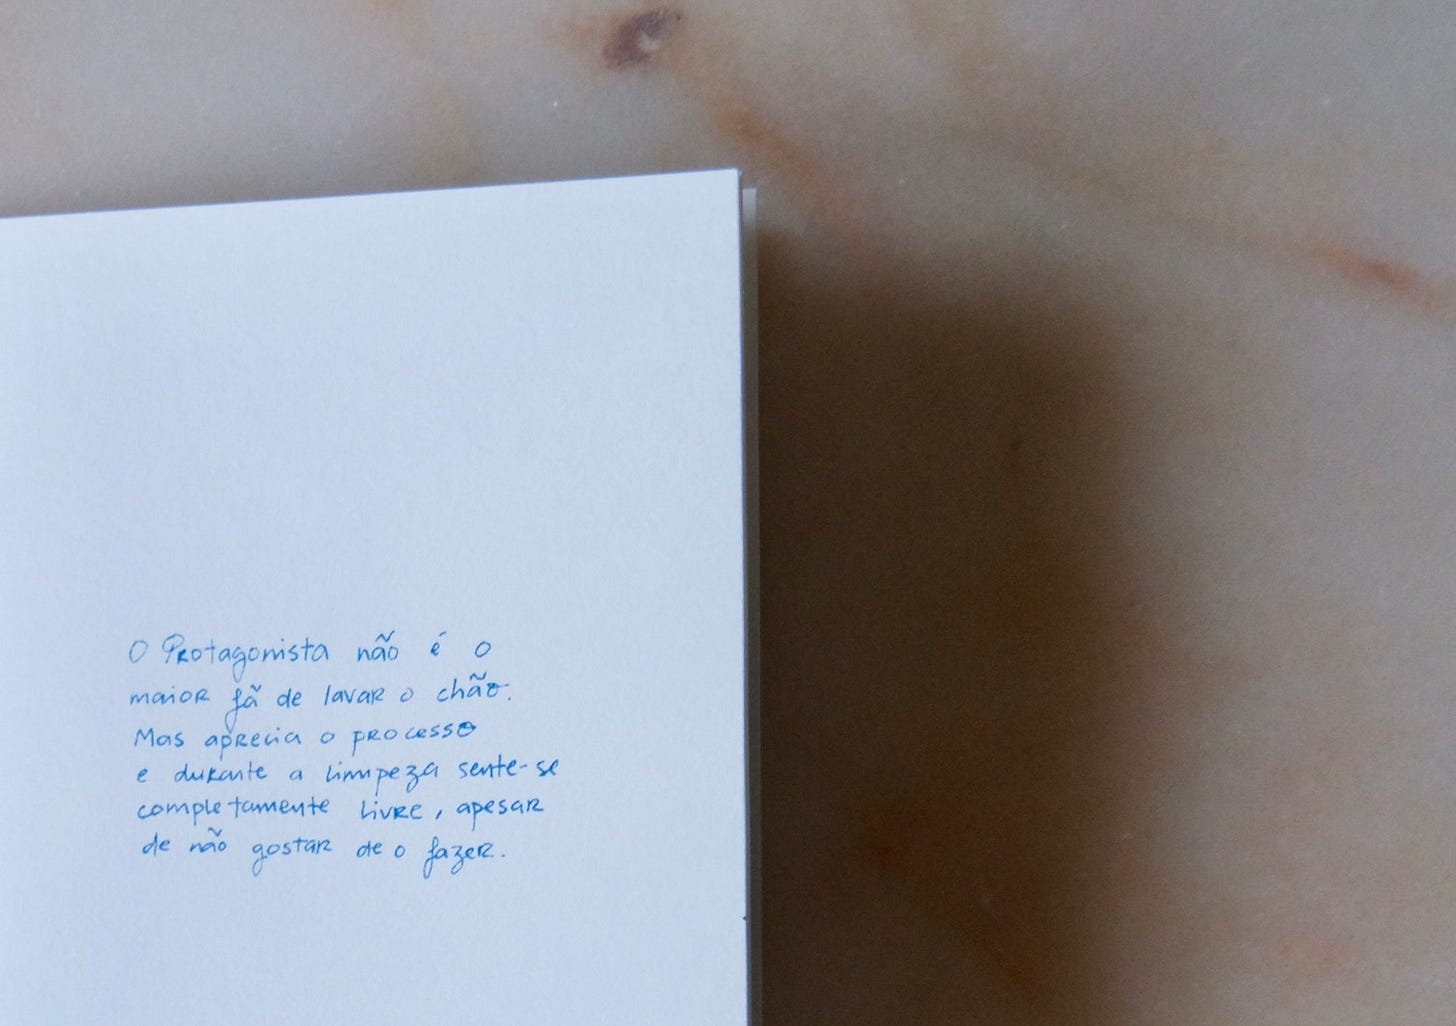 O Protagonista não é o
maior fã de lavar o chão.
Mas aprecia o processo
e durante a limpeza sente-se
completamente livre, apesar
de não gostar de o fazer.